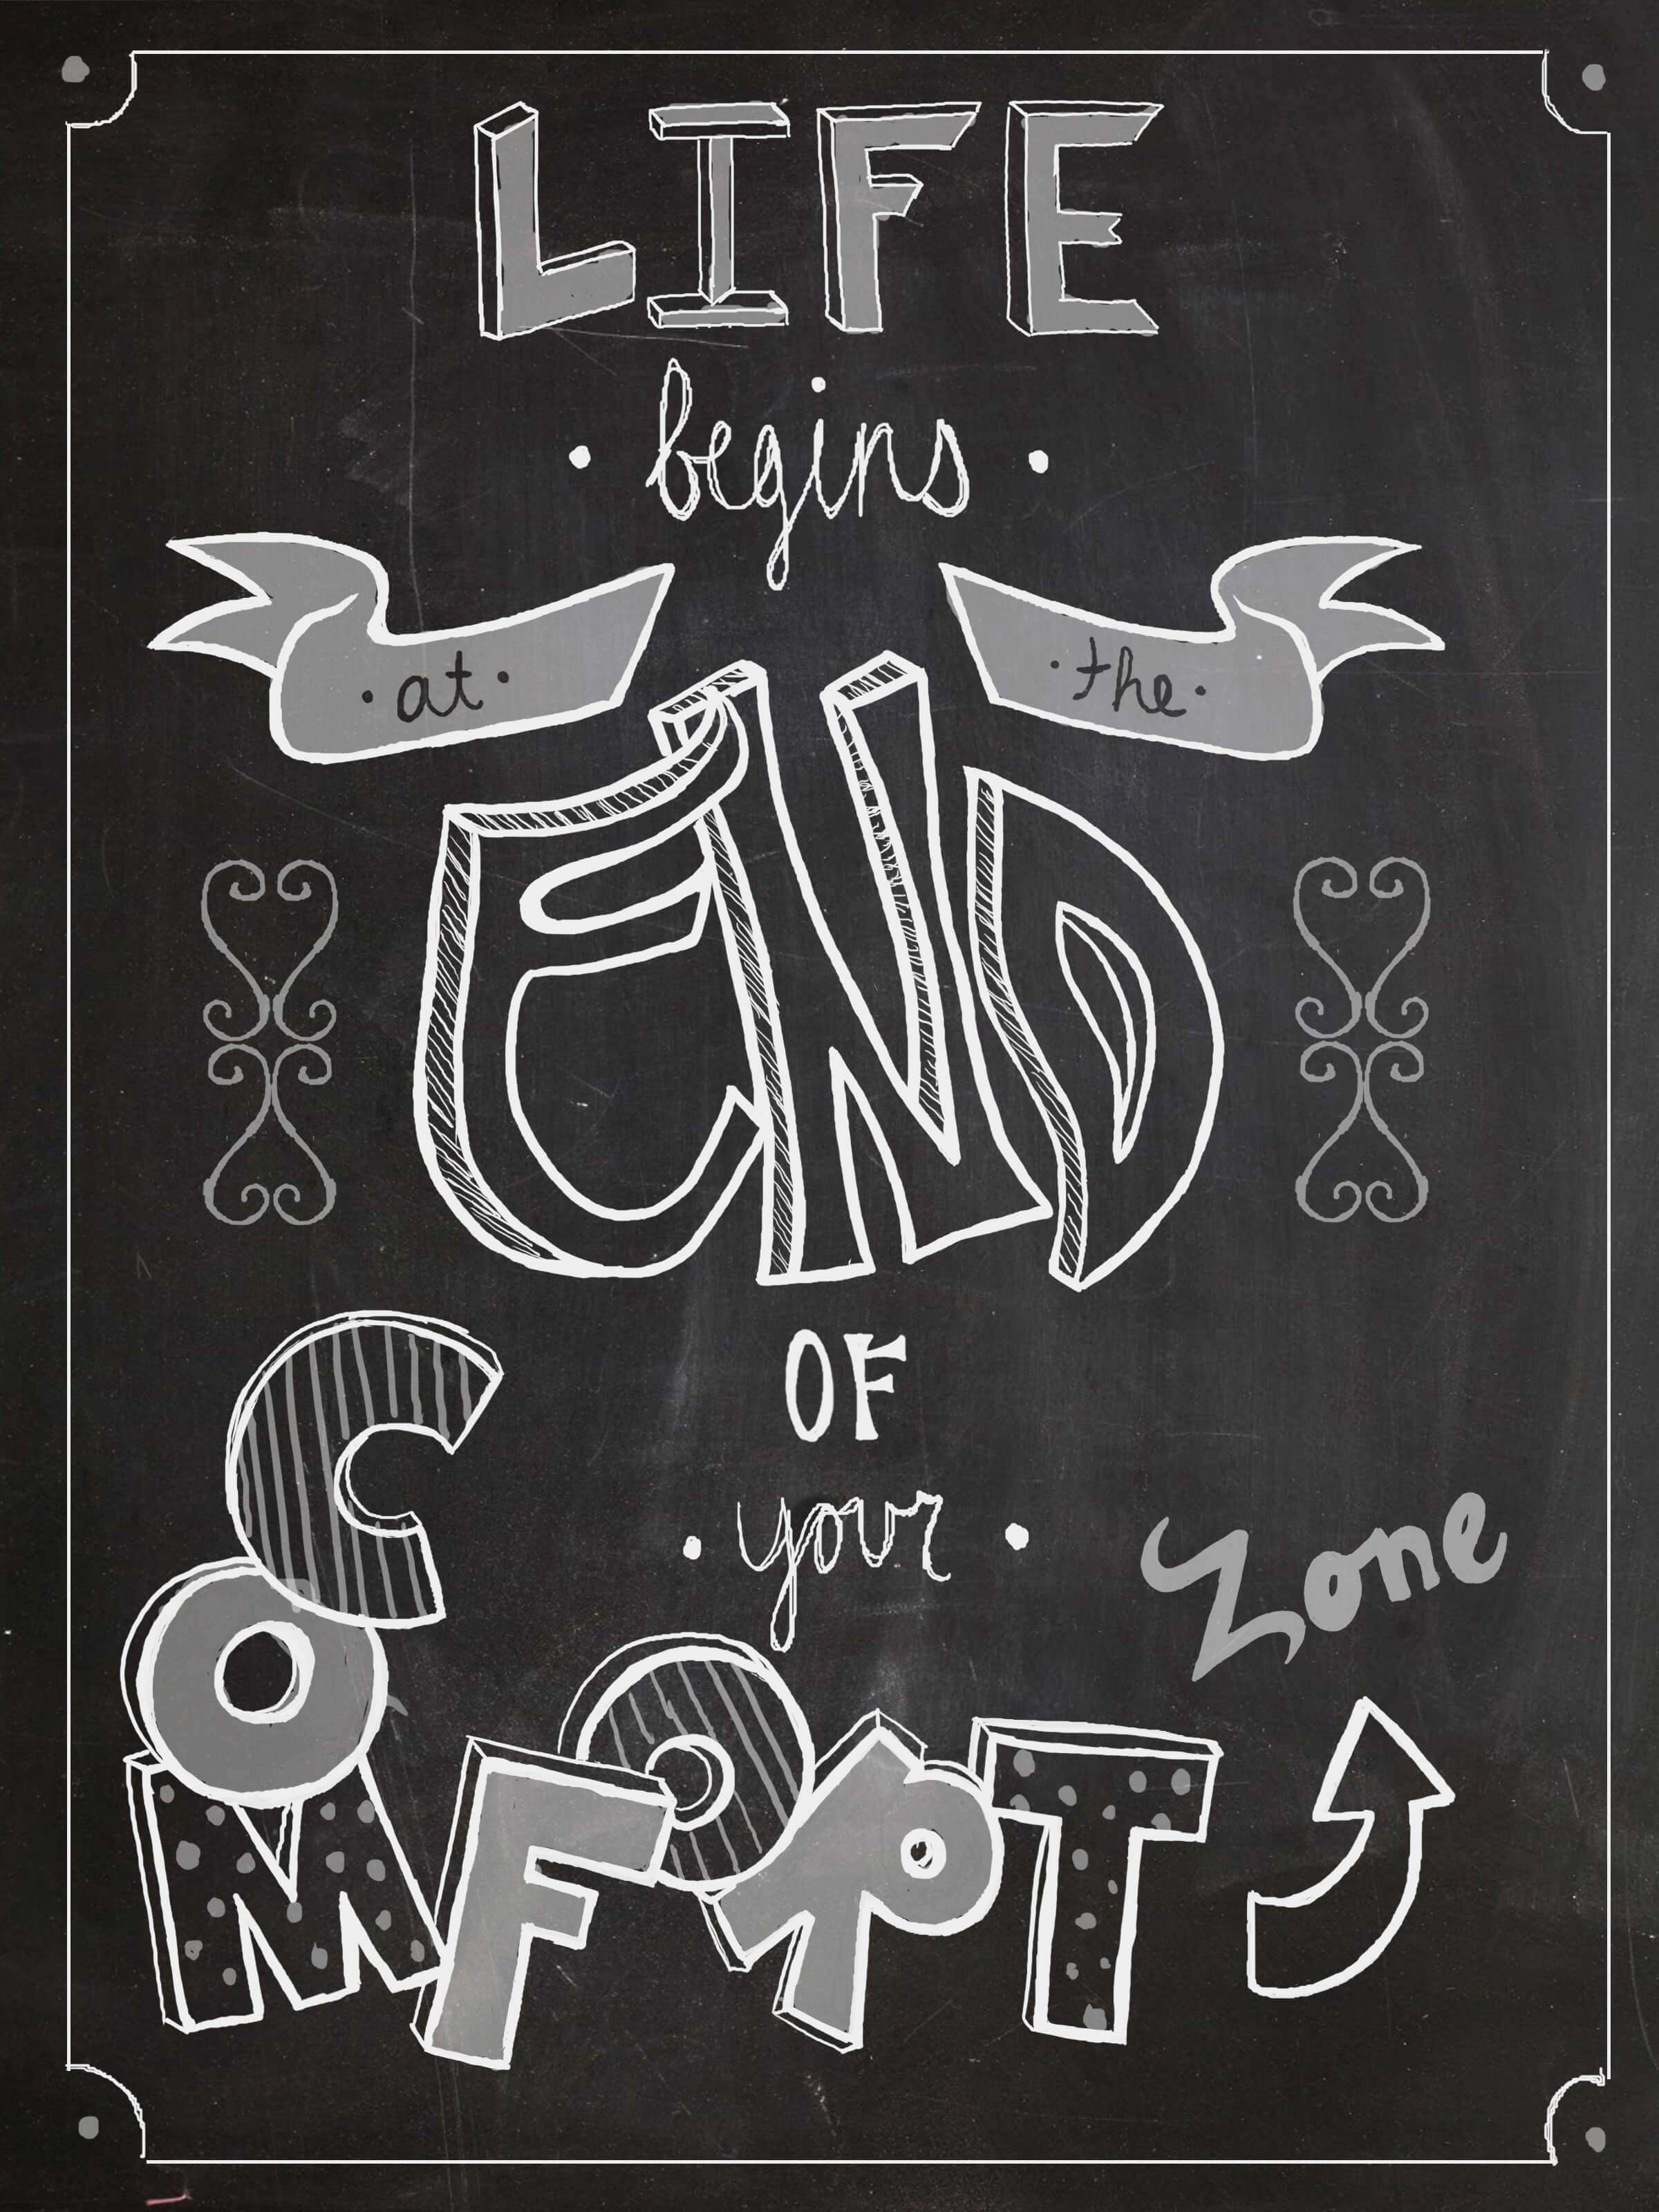 LIFE
begins
at the
END
OF
your
COMFORT
Zone